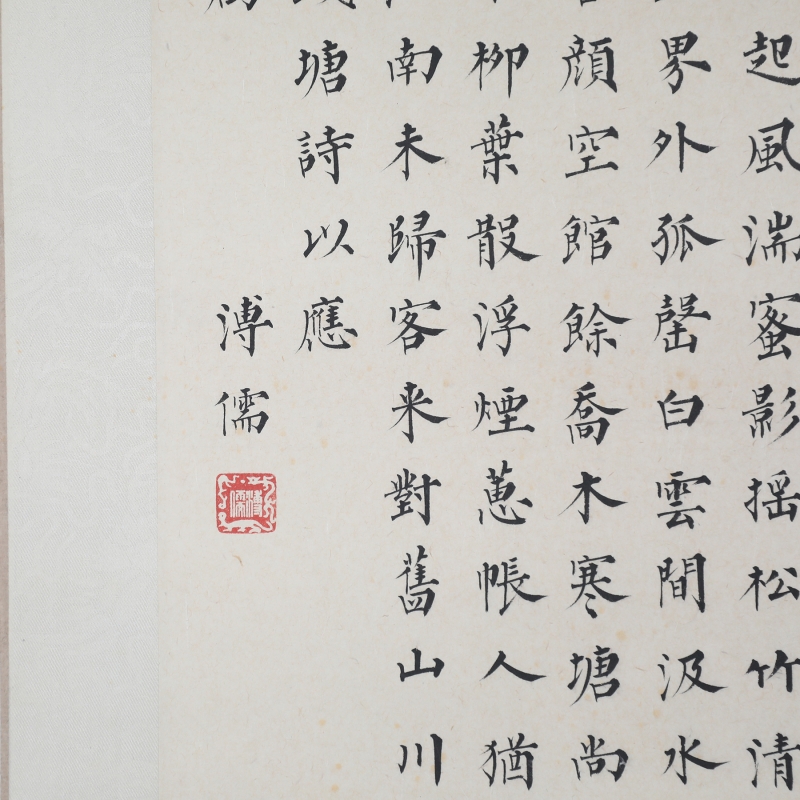 起風湍蜜影搖松竹清
界外孤磬白雲間汲水
顏空館餘喬木寒塘尚
柳葉散浮煙蕙帳人猶
南未歸客来對舊山川
塘詩以應
溥儒
溥儒